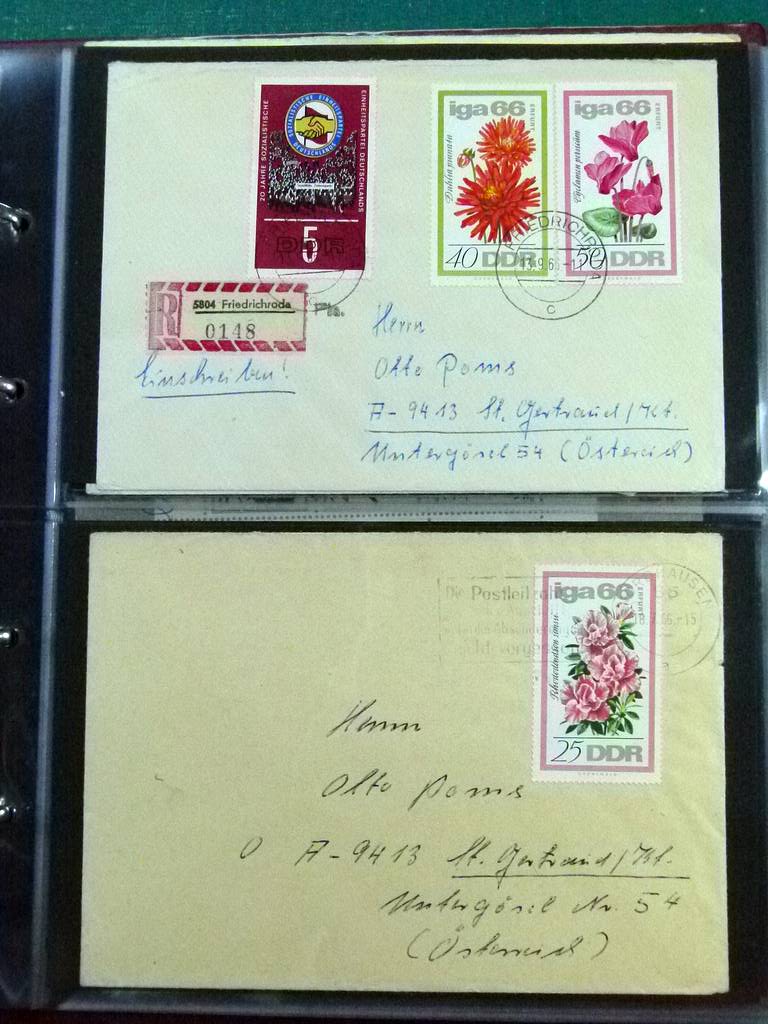 20 JAHRE SOZIALISTISCHE
EINHEITSPARTEI DEUTSCHLANDS
SOZIALISTISCHE EINHEITSPARTEI DEUTSCHLANDS
5
DDR
iga 66
ERFURT
Dahlia pinnata
40 DDR
iga 66
ERFURT
Cyclamen persicum
50 DDR
FRIEDRICHRODA
13.9.66-11
c
R
5804 Friedrichroda
0148
Einschreiben!
Herrn
Otto Poms
A-9413 St. Gertraud/Kt.
Untergösel 54 (Österreich)
Die Postleitzahl
iga 66
ERFURT
Rhododendron simsii
25 DDR
HAUSEN
18.7.66-15
Herrn
Otto Poms
A-9413 St. Gertraud/Kt.
Untergösel Nr. 54
(Österreich)